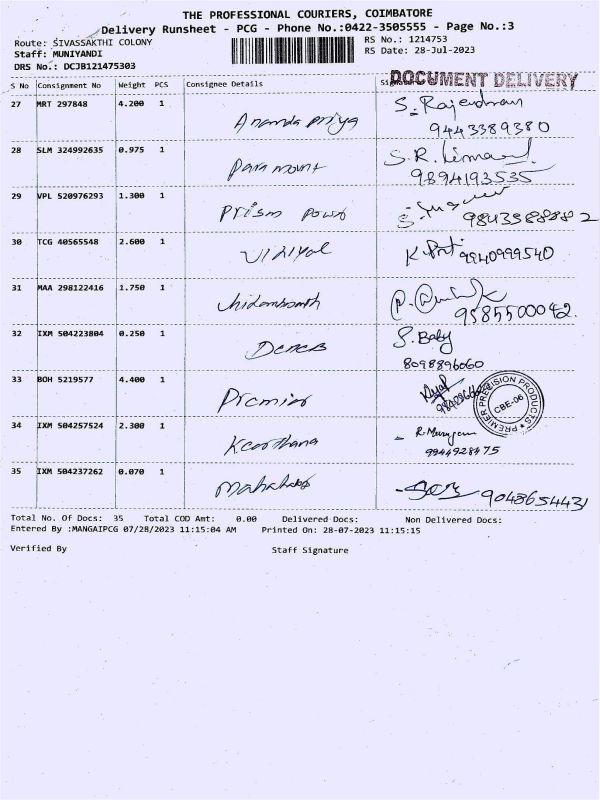 THE PROFESSIONAL COURIERS, COIMBATORE
Delivery Runsheet - PCG - Phone No.:0422-3505555 - Page No.:3
Route: SIVASSAKTHI COLONY
RS No.: 1214753
Staff: MUNIYANDI
RS Date: 28-Jul-2023
DRS No.: DCJB121475303
DOCUMENT DELIVERY
S No Consignment No Weight PCS Consignee Details
27 MRT 297848 4.200 1 Ananda priya S. Rajendran
9443389380
28 SLM 324992635 0.975 1 Paramount S.R.
9894193535
29 VPL 520976293 1.300 1 Prism
30 TCG 40565548 2.600 1 Vidiyal 9940999540
31 MAA 298122416 1.750 1
9585500042.
32 IXM 504223804 0.250 1 S. Baby
8098896060
33 BOH 5219577 4.400 1 Premier
PREMIER PRECISION PRODUCTS
CBE-06
34 IXM 504257524 2.300 1 Keerthana R. Murugan
9944928475
35 IXM 504237262 0.070 1 9048654431
Total No. Of Docs: 35 Total COD Amt: 0.00 Delivered Docs: Non Delivered Docs:
Entered By :MANGAIPCG 07/28/2023 11:15:04 AM Printed On: 28-07-2023 11:15:15
Verified By Staff Signature